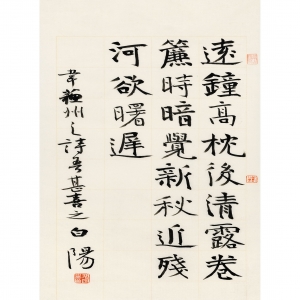 遠鐘高枕後清露卷
簾時暗覺新秋近殘
河欲曙遲
韋蘇州之詩吾甚喜之白陽